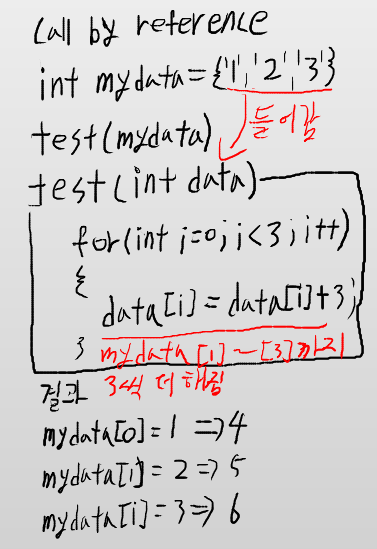 Call by reference
int mydata={'1','2','3'}
test(mydata)
들어감
test(int data)
for(int i=0;i<3;i++)
{
data[i]=data[i]+3;
}
mydata[1]~[3]까지
3씩 더해짐
결과
mydata[0]=1 => 4
mydata[i]=2 => 5
mydata[i]=3 => 6